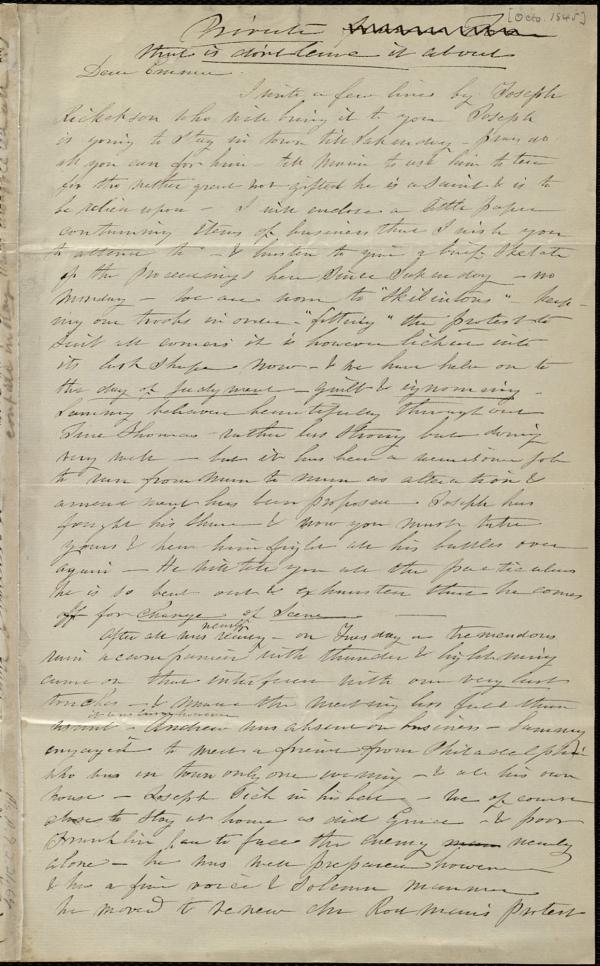 [Octo. 1845]
Private
that is don't leave it about
Dear Emma
I write a few lines by Joseph
Ricketson who will bring it to you Joseph
is going to stay in town till Saturday - pray do
all you can for him - tell Maria to ask him to tea
for tho neither great nor gifted he is a Saint & is to
be relied upon - I will enclose a little paper
containing items of business that I wish you
to attend to - & hasten to give a brief Sketch
of the Proceedings here Since Saturday - no
Monday - We are worn to "Skilintons" - keep-
ing our troops in order - "fitting" the protest to
Suit all comers it is however licked into
its last Shape now - & we have held on to
the day of Judgment - guilt & ignominy -
Sammy behaved beautifully throughout
Thomas - rather less Strong but doing
very well - but it has been a wearisome job
to run from man to man as alteration &
amendment has been proposed Joseph has
fought his Share & now you must take
yours & hear him fight all his battles over
again - He will tell you all the particulars
he is so beat out & exhausted that he comes
off for change of Scene
After all was nearly ready - on Tuesday a tremendous
rain accompanied with thunder & lightning
came on that interfered with our very last
touches - & made the meeting less full than
usual - Andrew was absent on business - Sammy
it was large however
engaged to meet a friend from Philadelphia
who was in town only one evening - & at his own
house - Joseph Sick in his bed - We of course
to Stay at home as did Grace - & poor
Franklin had to face the enemy nearly
alone - he was well prepared however
& has a fine voice & Solemn manner
he moved to renew the Rodman's Protest